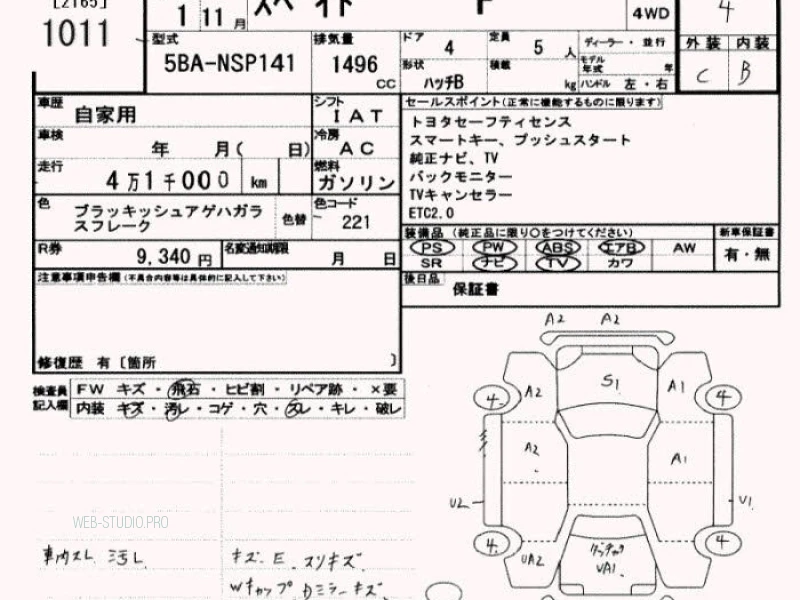 [2165]
1 11 月 スペイド F 4WD 4
1011
型式 5BA-NSP141 排気量 1496 CC
ドア 4 定員 5 人 ディーラー・並行
形状 ハッチB 積載 kg モデル年式 年
ハンドル 左・右
外装 内装
C B
車歴 自家用 シフト I A T
車検 年 月( 日) 冷房 A C
走行 4万1千000 km 燃料 ガソリン
色 ブラッキッシュアゲハガラスフレーク 色替 色コード 221
R券 9,340 円 名変通知期限 月 日
セールスポイント(正常に機能するものに限ります)
トヨタセーフティセンス
スマートキー、プッシュスタート
純正ナビ、TV
バックモニター
TVキャンセラー
ETC2.0
装備品 (純正品に限り○をつけてください) 新車保証書
PS PW ABS エアB AW 有・無
SR ナビ TV カワ
後日品 保証書
注意事項申告欄(不具合内容等は具体的に記入して下さい)
修復歴 有 〔箇所 〕
検査員記入欄
FW キズ・飛石・ヒビ割・リペア跡・×要
内装 キズ・汚レ・コゲ・穴・スレ・キレ・破レ
A2 A2
S1
4 A2 A1 4
A2 A1
U2 U1
4 UA2 UA1 4
WEB-STUDIO.PRO
車内スレ 汚レ
キズ. E. スリキズ.
Wキャップ Dミラーキズ.